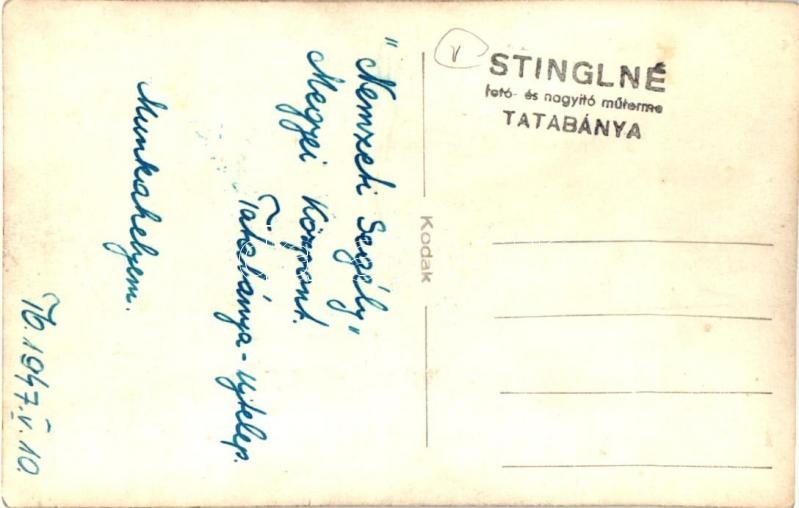 "Nemzeti Segély"
Megyei Központ.
Tatabánya-Ujtelep.
Munkahelyem.
Tb. 1947. V. 10.
Kodak
V
STINGLNÉ
fotó- és nagyitó műterme
TATABÁNYA